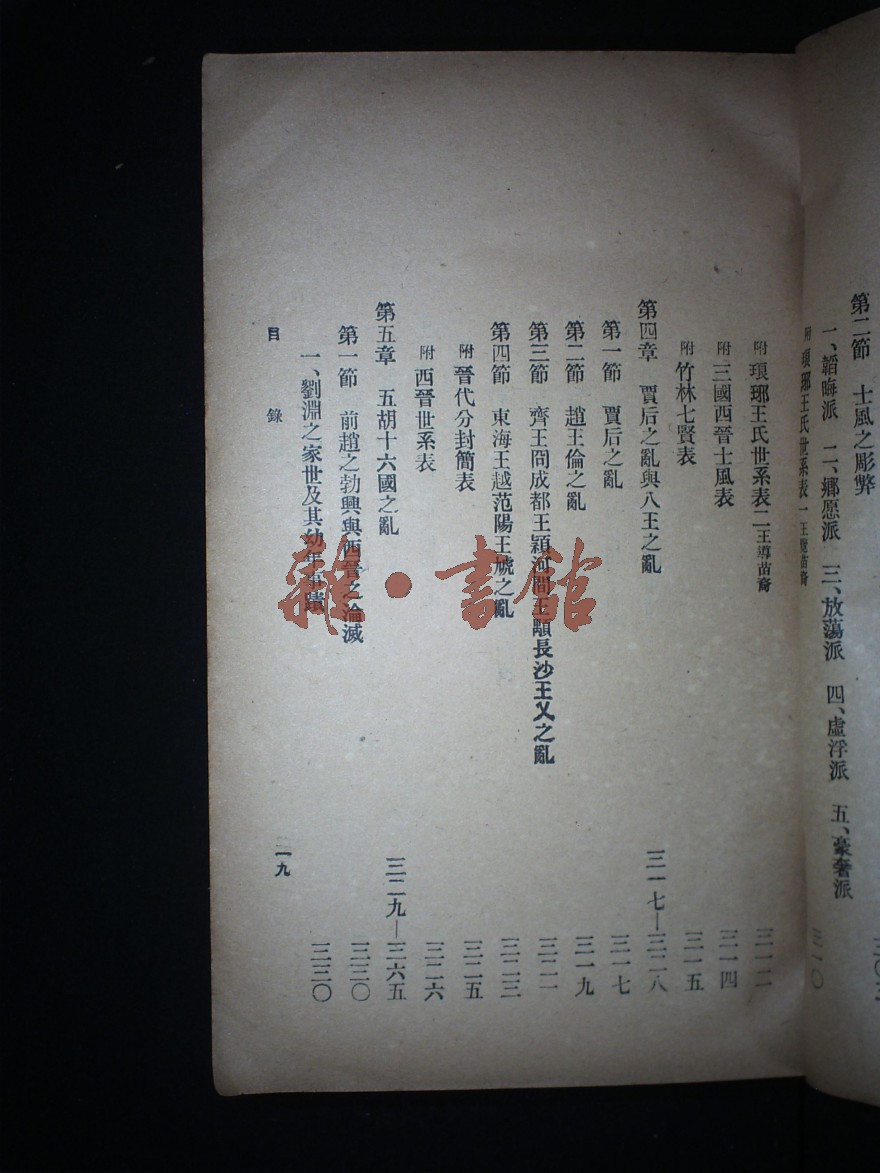 第二節 士風之彫弊
一、韜晦派 二、鄉愿派 三、放蕩派 四、虛浮派 五、豪奢派
附 琅琊王氏世系表一王覽苗裔 三一〇
附 琅琊王氏世系表二王導苗裔 三一二
附 三國西晉士風表 三一四
附 竹林七賢表 三一五
第四章 賈后之亂與八王之亂 三一七—三二八
第一節 賈后之亂 三一七
第二節 趙王倫之亂 三一九
第三節 齊王冏成都王穎河間王顒長沙王乂之亂 三二一
第四節 東海王越范陽王虓之亂 三二三
附 晉代分封簡表 三二五
附 西晉世系表 三二六
第五章 五胡十六國之亂 三二九—三六五
第一節 前趙之勃興與西晉之淪滅 三三〇
一、劉淵之家世及其幼年事蹟 三三〇
目錄 一九
雜·書館